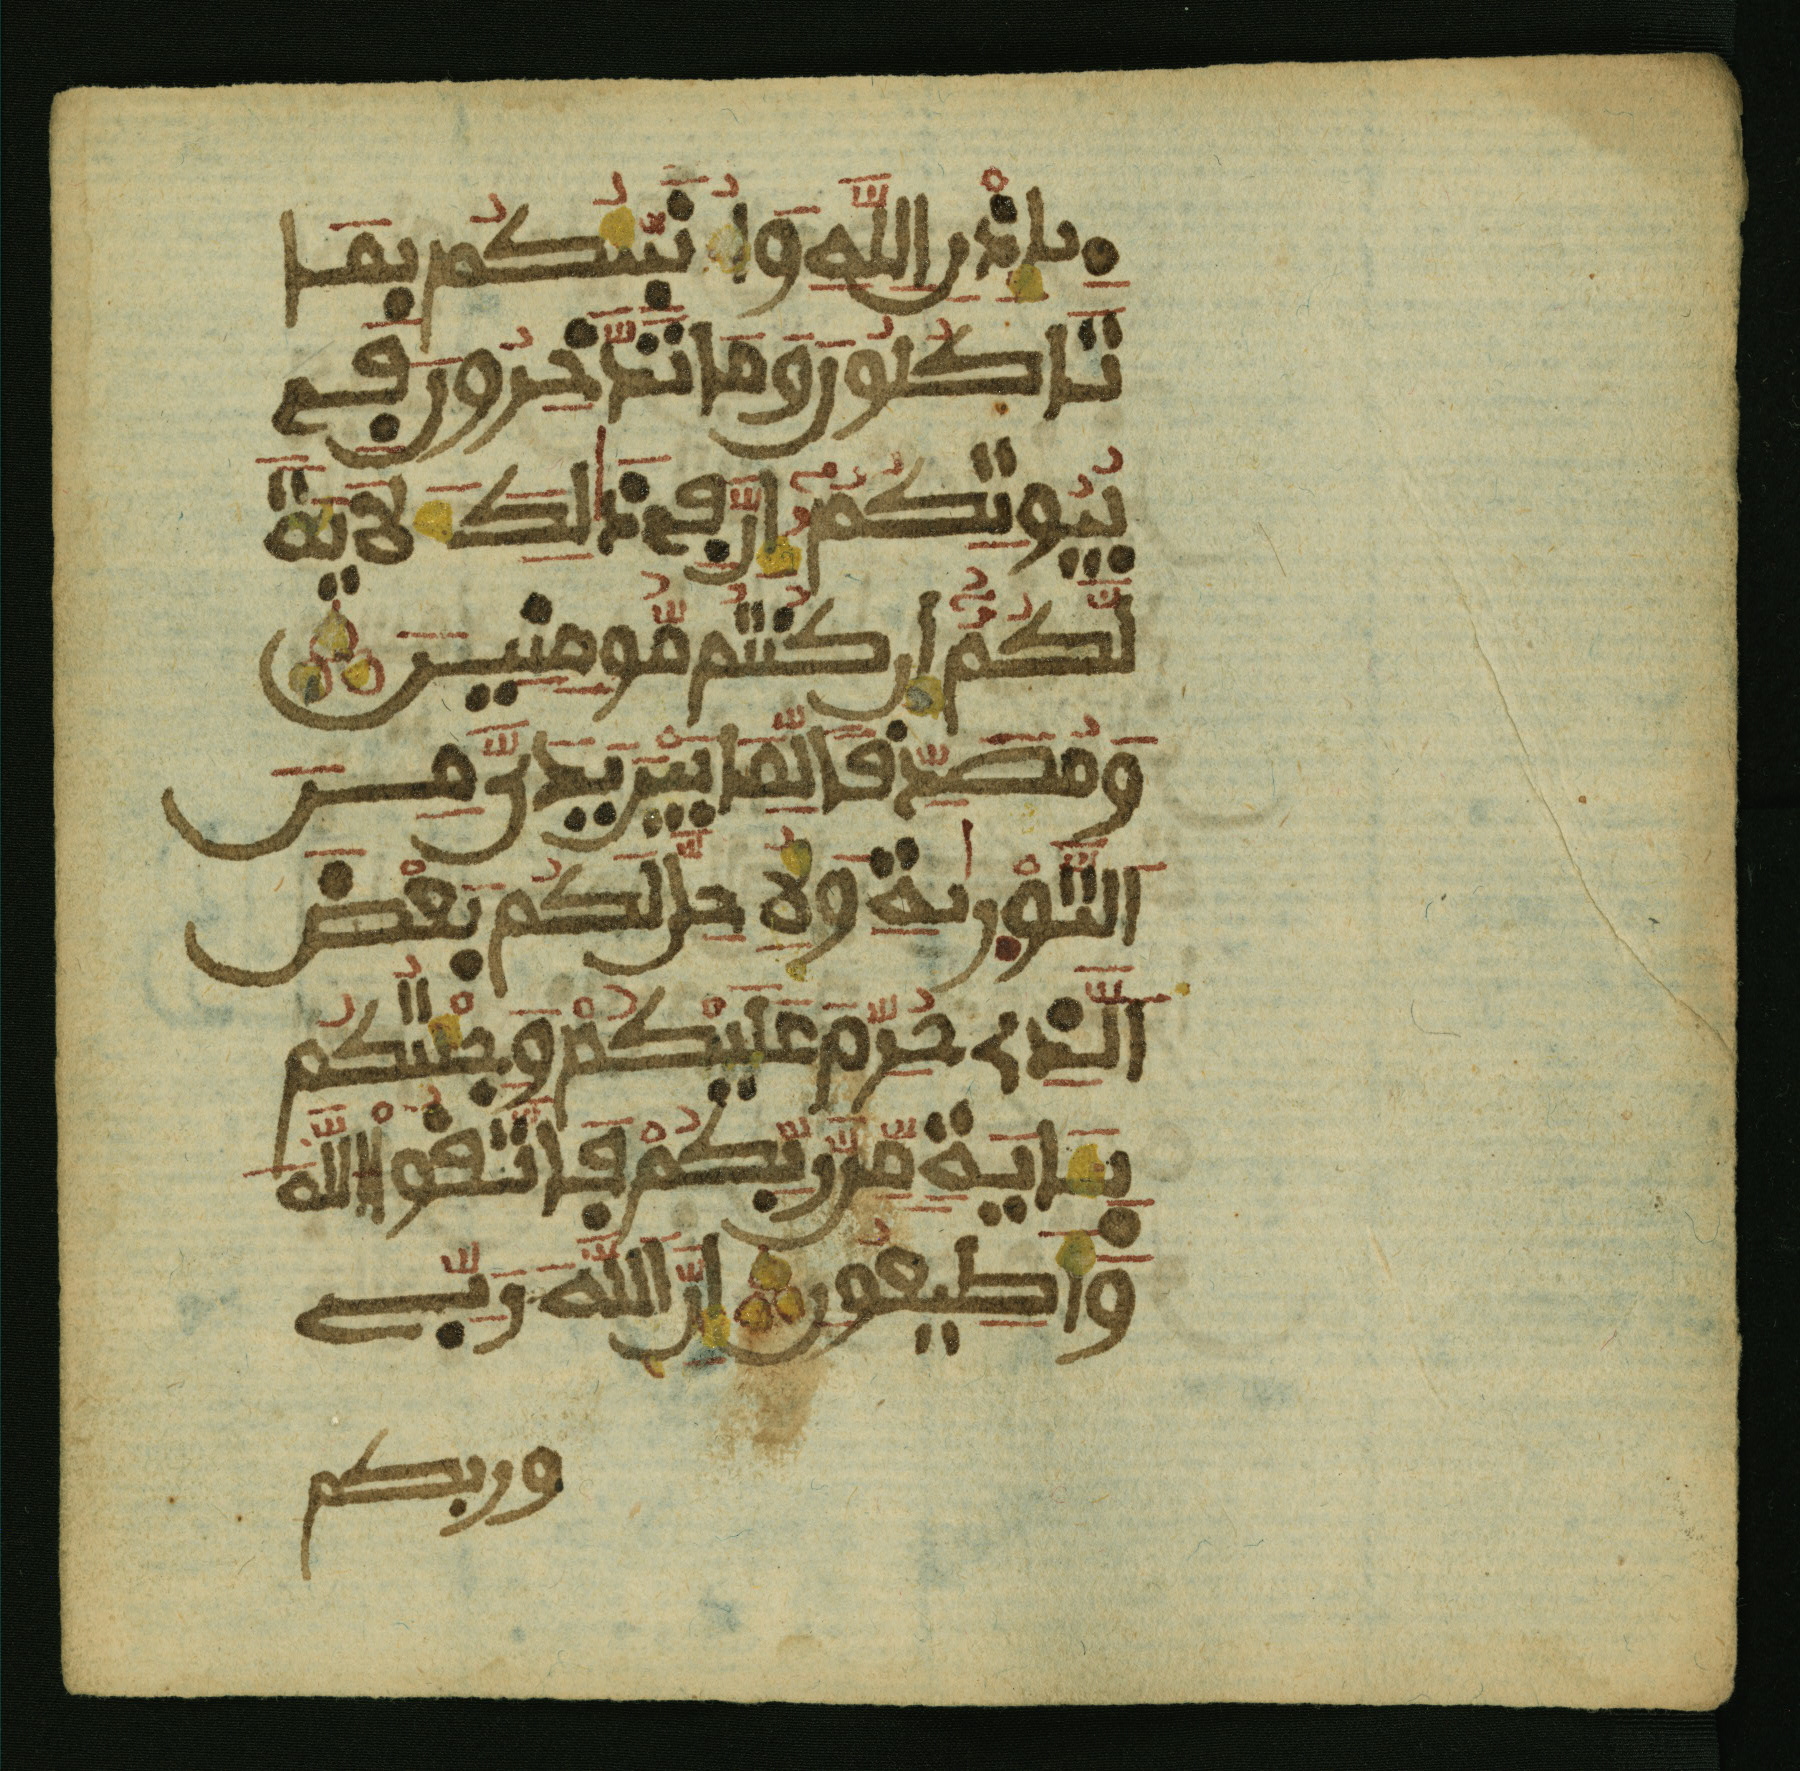 بِإِذْنِ اللَّهِ وَأُنَبِّئُكُم بِمَا
تَاكُلُونَ وَمَا تَدَّخِرُونَ فِے
بُيُوتِكُمُۥ إِنَّ فِے ذَٰلِكَ لَأَيَةَ
لَّكُمُۥ إِن كُنتُم مُّومِنِينَ
وَمُصَدِّقاً لِّمَا بَيْنَ يَدَيَّ مِنَ
اَلتَّوْرَىٰةِ وَلِأُحِلَّ لَكُم بَعْضَ
اَلَّذِے حُرِّمَ عَلَيْكُمْ وَجِئْتُكُم
بِـَٔايَةٍ مِّن رَّبِّكُمْ فَاتَّقُوا اللَّهَ
وَأَطِيعُونِ إِنَّ اللَّهَ رَبِّے
وربكم